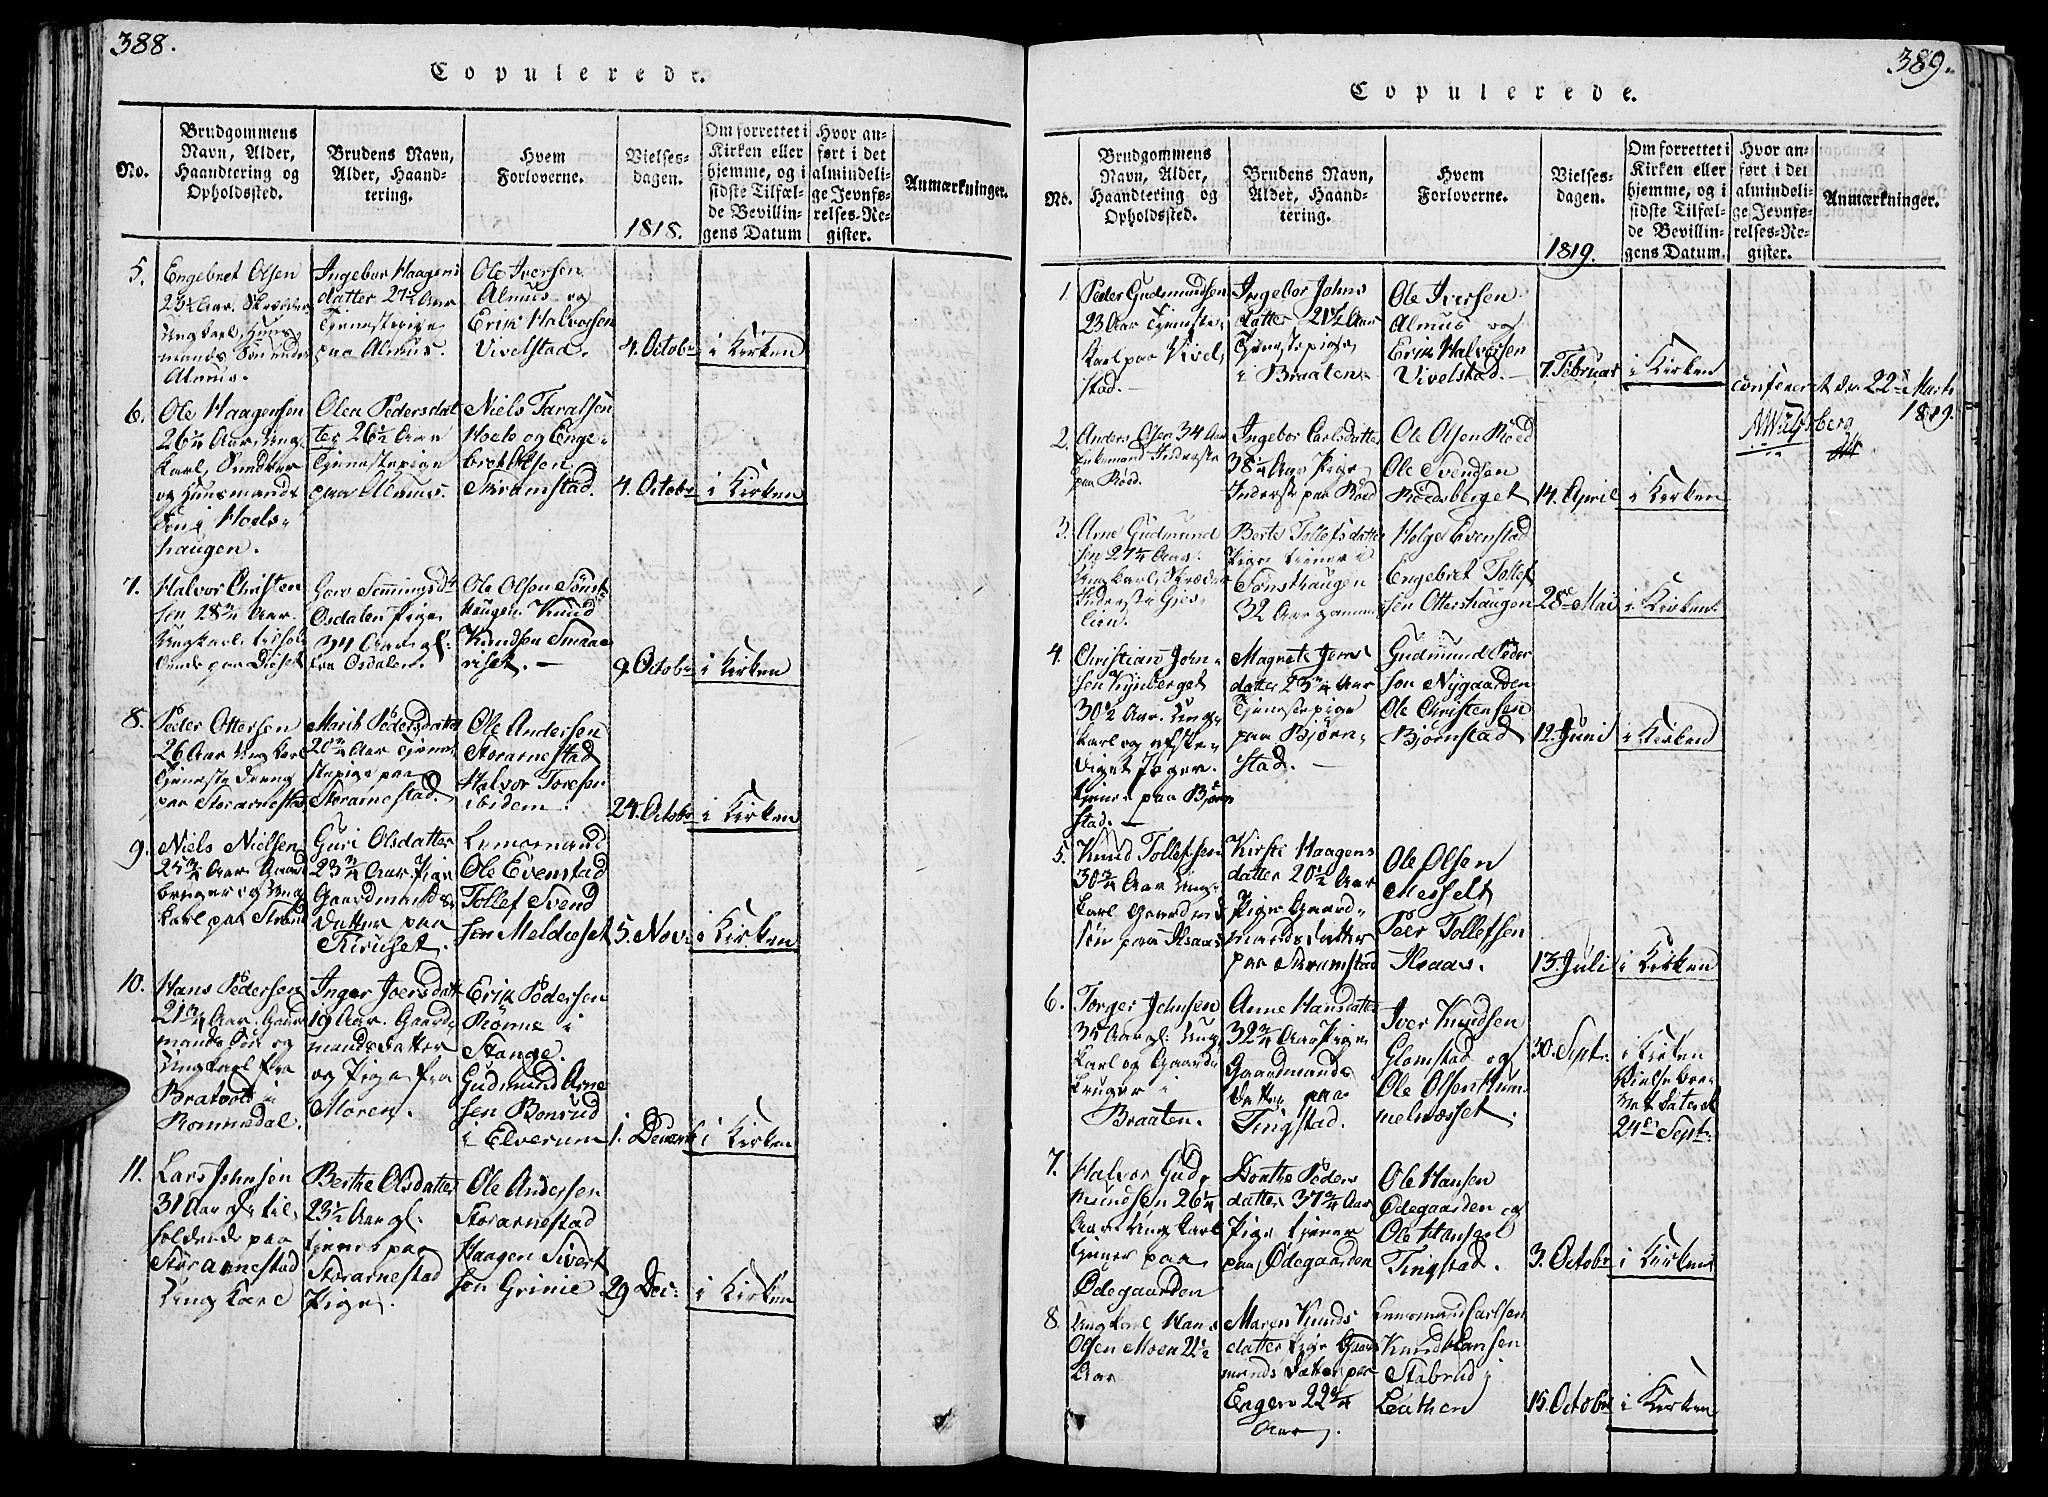 388.
Copulerede.
No.
Brudgommens
Navn, Alder,
Haandtering og
Opholdssted.
Brudens Navn,
Alder, Haand-
tering.
Hvem
Forloverne.
Vielses-
dagen.
1818.
Om forrettet i
Kirken eller
hjemme, og i
sidste Tilfæl-
de Bevillin-
gens Datum
Hvor an-
ført i det
almindeli-
ge Jevnfø-
relses-Re-
gister.
Anmærkninger.
5.
Engebret Olsen
23½ Aar. Skrædder
Ungkarl, Huus-
mands Søn under
Almus.
Ingebor Haagens
datter 27½ Aar
Tjenestepige
paa Almus.
Ole Iversen
Almus og
Erik Halvorsen
Vivelstad.
4. Octobr
i Kirken
6.
Ole Haagensen
26¼ Aar, Ung-
karl, Snedker
og Huusmands
Søn i Hoels-
haugen.
Olea Pedersdat
ter 26½ Aar
Tjenestepige
paa Almus.
Niels Taralsen
Hoele og Enge-
bret Olsen
Skramstad.
4. Octobr
i Kirken
7.
Halvor Christen
sen 28¾ Aar
Ungkarl tilhol-
dende paa Diset
Goro Semmingsdt
Osdalen Pige
34 Aar gl:
fra Osdalen.
Ole Olsen Sønst
haugen. Knud
Knudsen Smaae
riset. —
9. Octobr
i Kirken
8.
Peder Ottersen
26 Aar Ungkarl
Tjeneste dreng
paa Storarnestad
Marit Pedersdatter
20¾ Aar tjene
stepige paa
Storarnestad.
Ole Andersen
Storarnestad
Halvor Toresen
ibidem.
24. Octobr
i Kirken
9.
Niels Nielsen
25¾ Aar Gaard
bruger og Ung
karl paa Strand
Guri Olsdatter
23¾ Aar. Pige
Gaardmands
datter paa
Kiruset.
Lensmand
Ole Evenstad
Tollef Svend
sen Meldieset
5. Nov:
i Kirken
10.
Hans Pedersen
21¾ Aar. Gaard
mands Søn og
Ungkarl fra
Bratvolt i
Rommedal.
Inger Joersdatt
19 Aar. Gaard-
mandsdatter
og Pige fra
Moren.
Erik Pedersen
Rønne i
Stange.
Gudmund Arne
sen Bonsrud
i Elverum
1. Decembr
i Kirken
11.
Lars Johnsen
31 Aar gl: til-
holdende paa
Storarnestad
Ungkarl
Berthe Olsdatter
23½ Aar gl:
tjenes paa
Storarnestad
Pige.
Ole Andersen
Storarnestad
Haagen Sivert
sen Grinie
29 Dec:
i Kirken
389.
Copulerede.
No.
Brudgommens
Navn, Alder,
Haandtering og
Opholdssted.
Brudens Navn,
Alder, Haand-
tering.
Hvem
Forloverne.
Vielses-
dagen.
1819.
Om forrettet i
Kirken eller
hjemme, og i
sidste Tilfæl-
de Bevillin-
gens Datum.
Hvor an-
ført i det
almindeli-
ge Jevnfø-
relses-Re-
gister.
Anmærkninger.
1.
Peder Gudmundsen
23 Aar Tjeneste-
karl paa Vivel-
stad. —
Ingebor Johns
datter 21½ Aar
Tjenestepige
i Braaten.
Ole Iversen
Almus og
Erik Halvorsen
Vivelstad. —
7. Februar
i Kirken
confereret den 22de Marts
1819.
2.
Anders Olsen 34 Aar
Enkemand Inderste
paa Röed.
Ingebor Carlsdatter
38¼ Aar Pige
Inderste paa Röed
Ole Olsen Röed
Ole Svendsen
Röedsberget
14. April
i Kirken
3.
Arne Gudmund
sen 27¼ Aar.
Ungkarl, Skrædder
Inderste i Gjes-
lien.
Berte Tollefsdatter
Pige tjener i
Sønsthaugen
32 Aar gammel
Helge Evenstad
Engebret Tollef
sen Ottershaugen
28de Mai
i Kirken.
4.
Christian John-
sen Kynberget
30½ Aar. Ung-
karl og afske-
diget Jæger.
tjener paa Bjørn
stad. —
Magnete Jens
datter 23¾ Aar
Tjenestepige
paa Bjørn-
stad. —
Gudmund Peder
sen Nygaarden
Ole Christensen
Bjørnstad
12. Juni
i Kirken
5.
Knud Tollefsen
30¾ Aar Ung-
karl Gaardmd
søn paa Ilsaas
Kirsti Haagens
datter 20½ Aar
Pige Gaard-
mandsdatter
paa Skramstad
Ole Olsen
Messelt
Peer Tollefsen
Ilsaas.
13. Juli
i Kirken
6.
Torger Johnsen
35 Aar gl: Ung-
karl og Gaard-
bruger i
Braaten.
Anne Hansdatter
32¾ Aar Pige
Gaardmands
datter paa
Tingstad.
Iver Knudsen
Glomstad og
Ole Olsen Hum
melvasset.
30. Sept:
i Kirken
Vielsebre-
vet dateret
24de Sept:
7.
Halvor Gud-
mundsen 26¼
Aar Ungkarl
tjener paa
Ødegaarden
Dorthe Peders
datter 37¾ Aar
Pige tjener
paa Ødegaarden
Ole Hansen
Ødegaarden og
Ole Hansen
Tingstad.
3. Octobr
i Kirken
8.
Ungkarl Hans
Olsen Moen 21½
Aar
Maren Knuds
datter Pige Gaard
mands datter paa
Engen 22¾
Aar.
Lensmand Carlsen
Knud Hansen
Stabrud i
Leuthen
15. Octobr
i Kirken